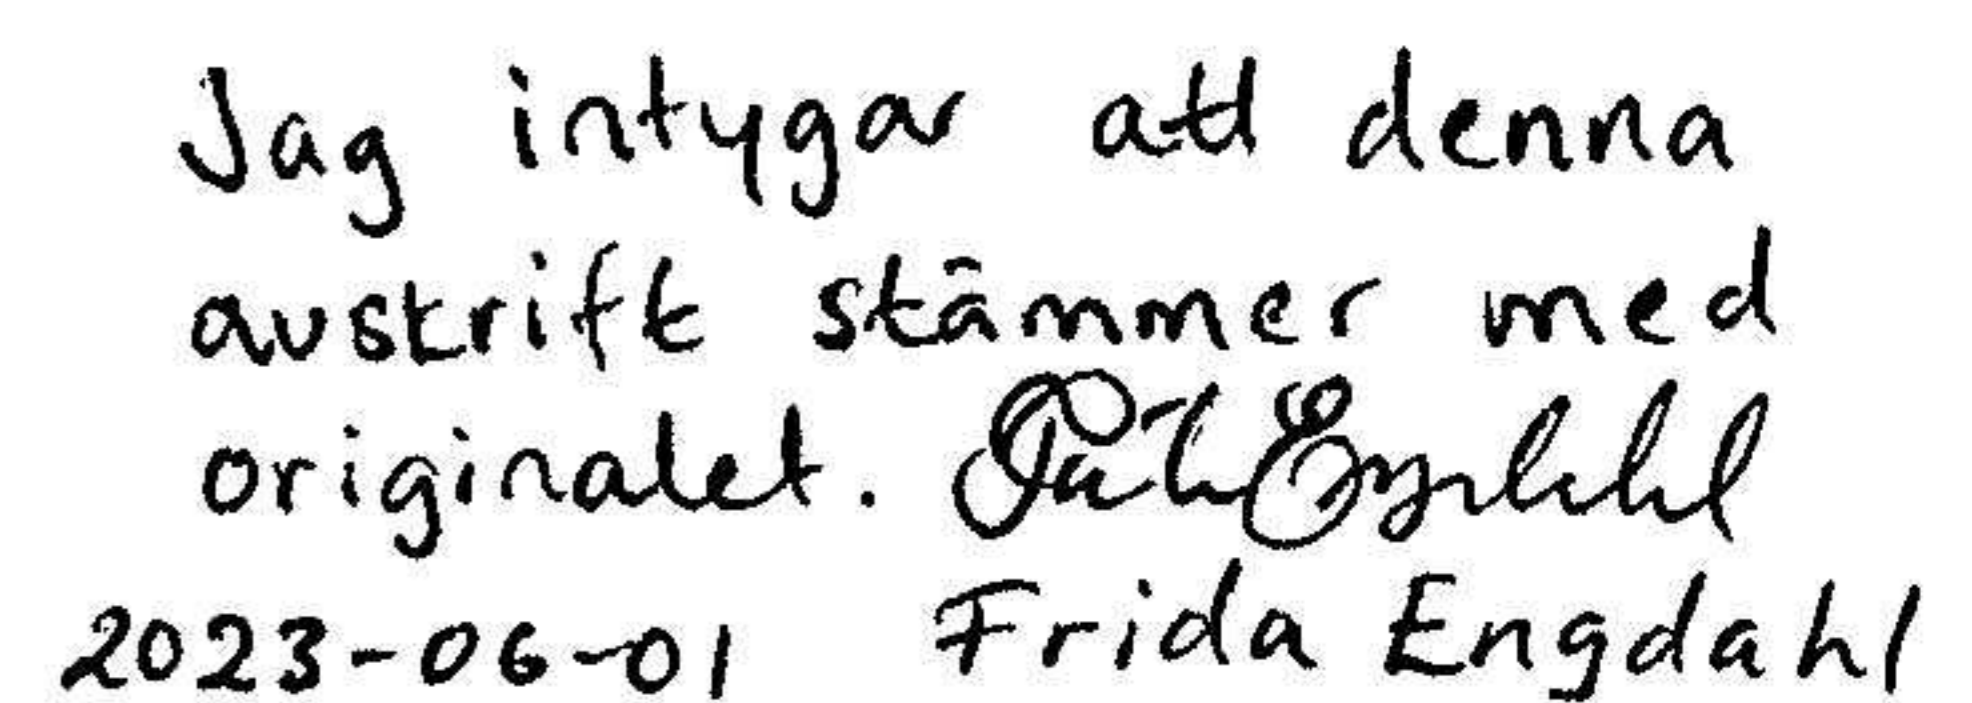 Jag intygar att denna
avskrift stämmer med
originalet.
2023-06-01 Frida Engdahl